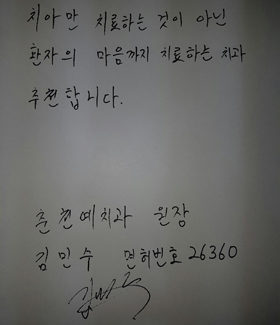 치아만 치료하는 것이 아닌
환자의 마음까지 치료하는 치과
추천합니다.
춘천예치과 원장
김민수 면허번호 26360